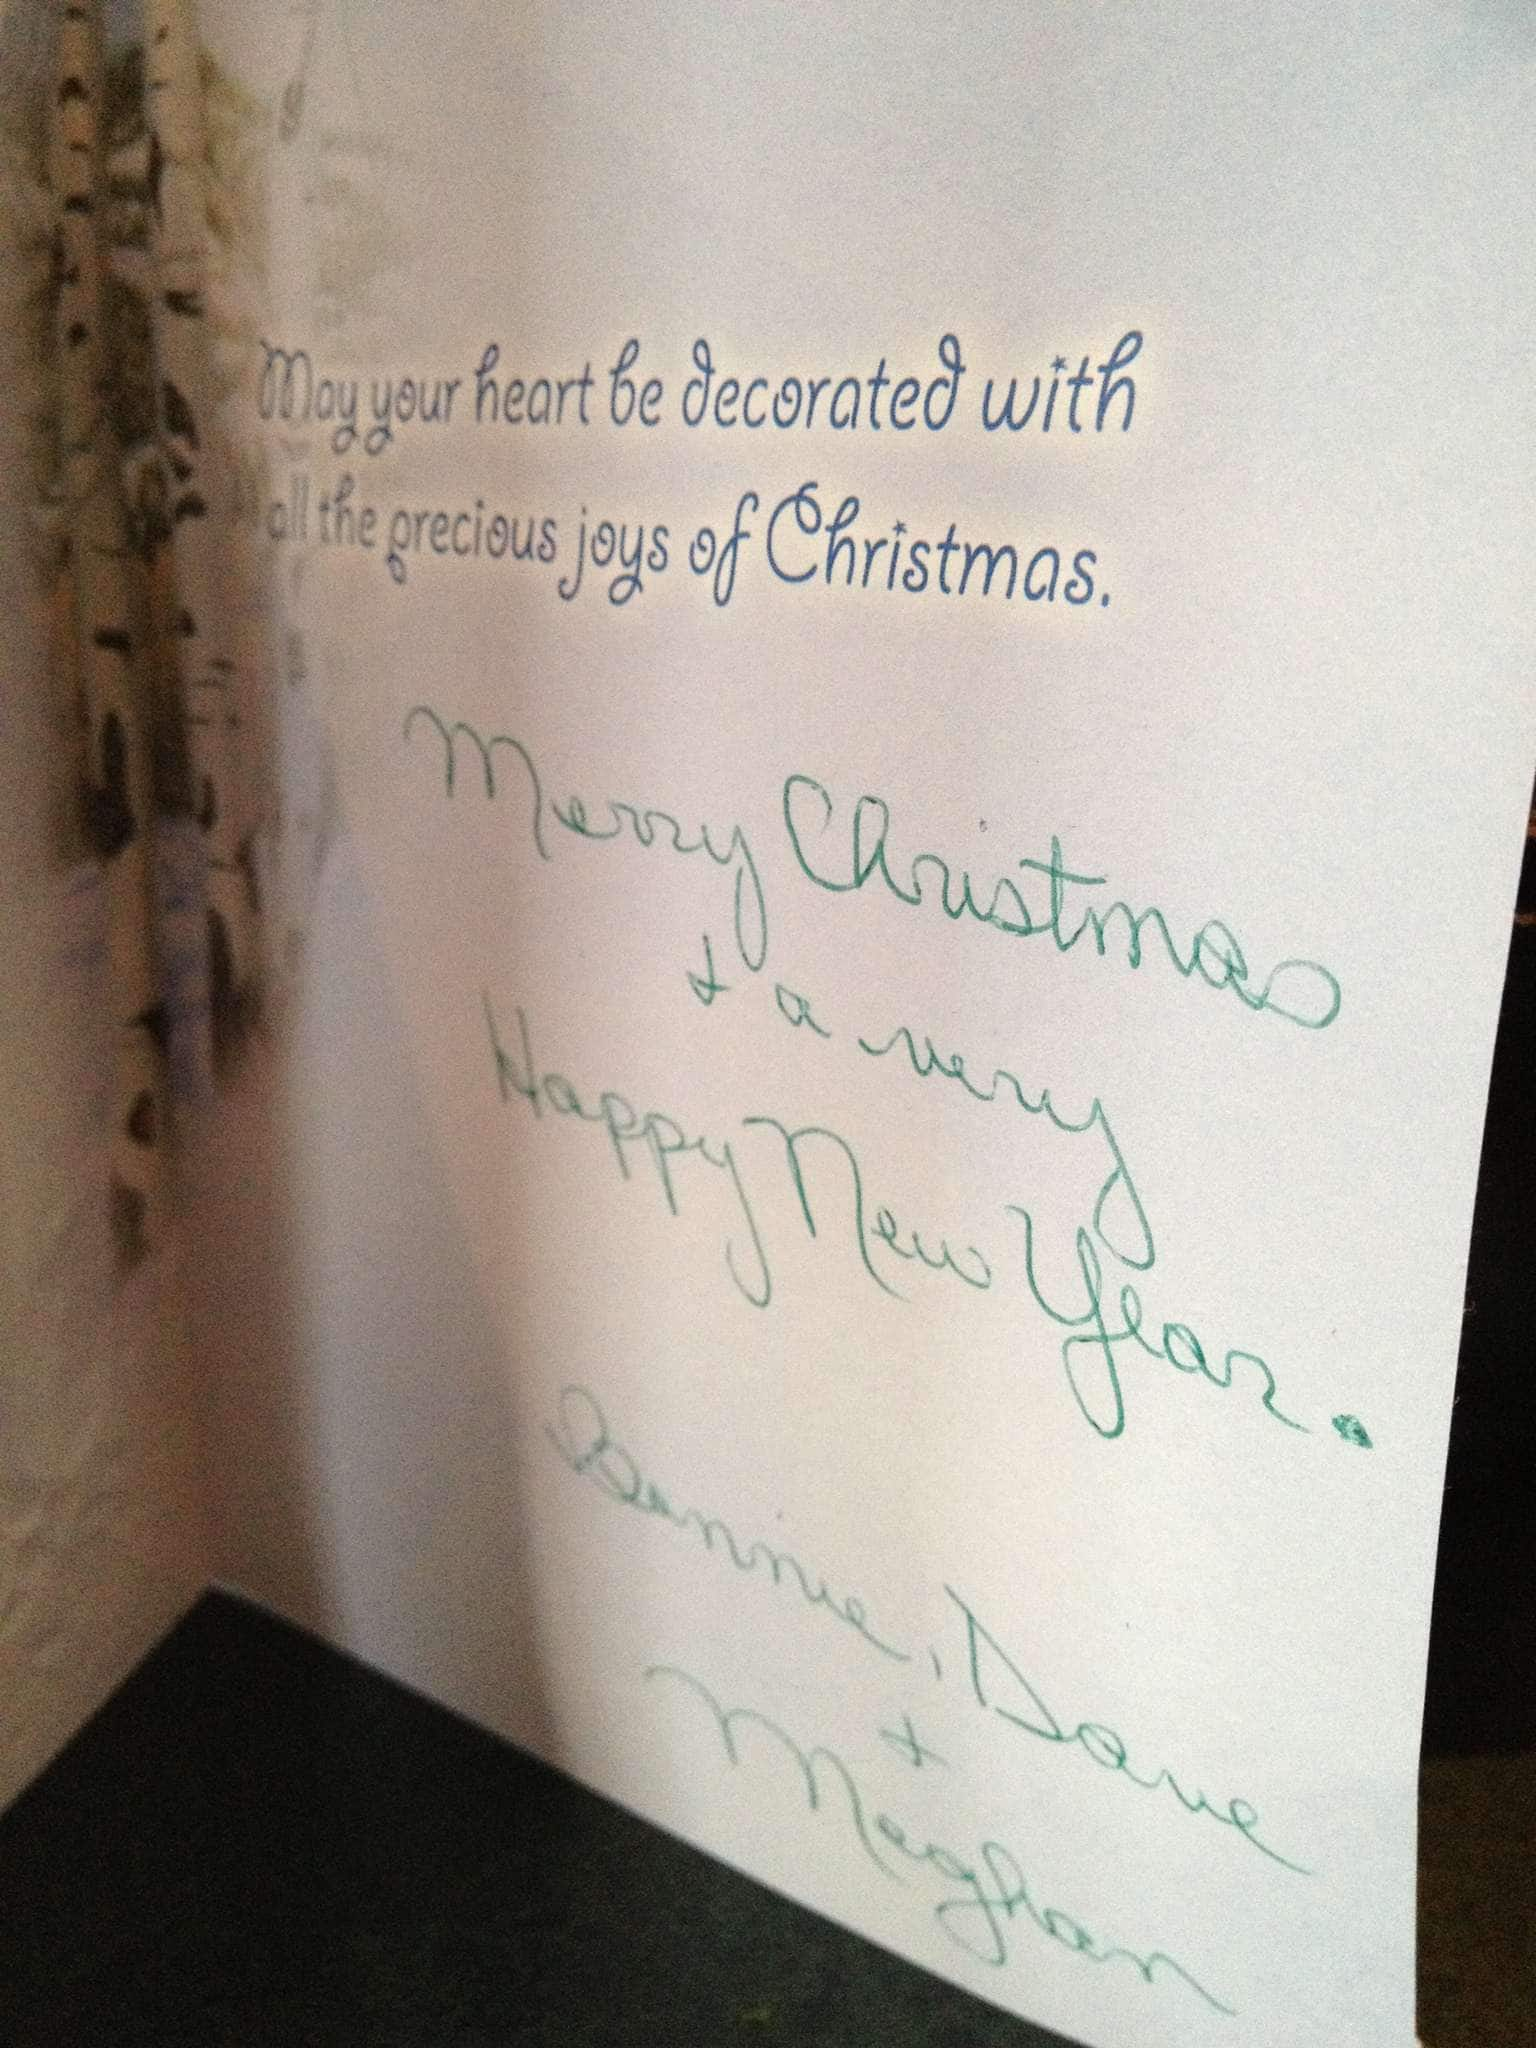 May your heart be decorated with
all the precious joys of Christmas.
Merry Christmas
+ a very
Happy New Year.
Bonnie, Dave
+
Meghan